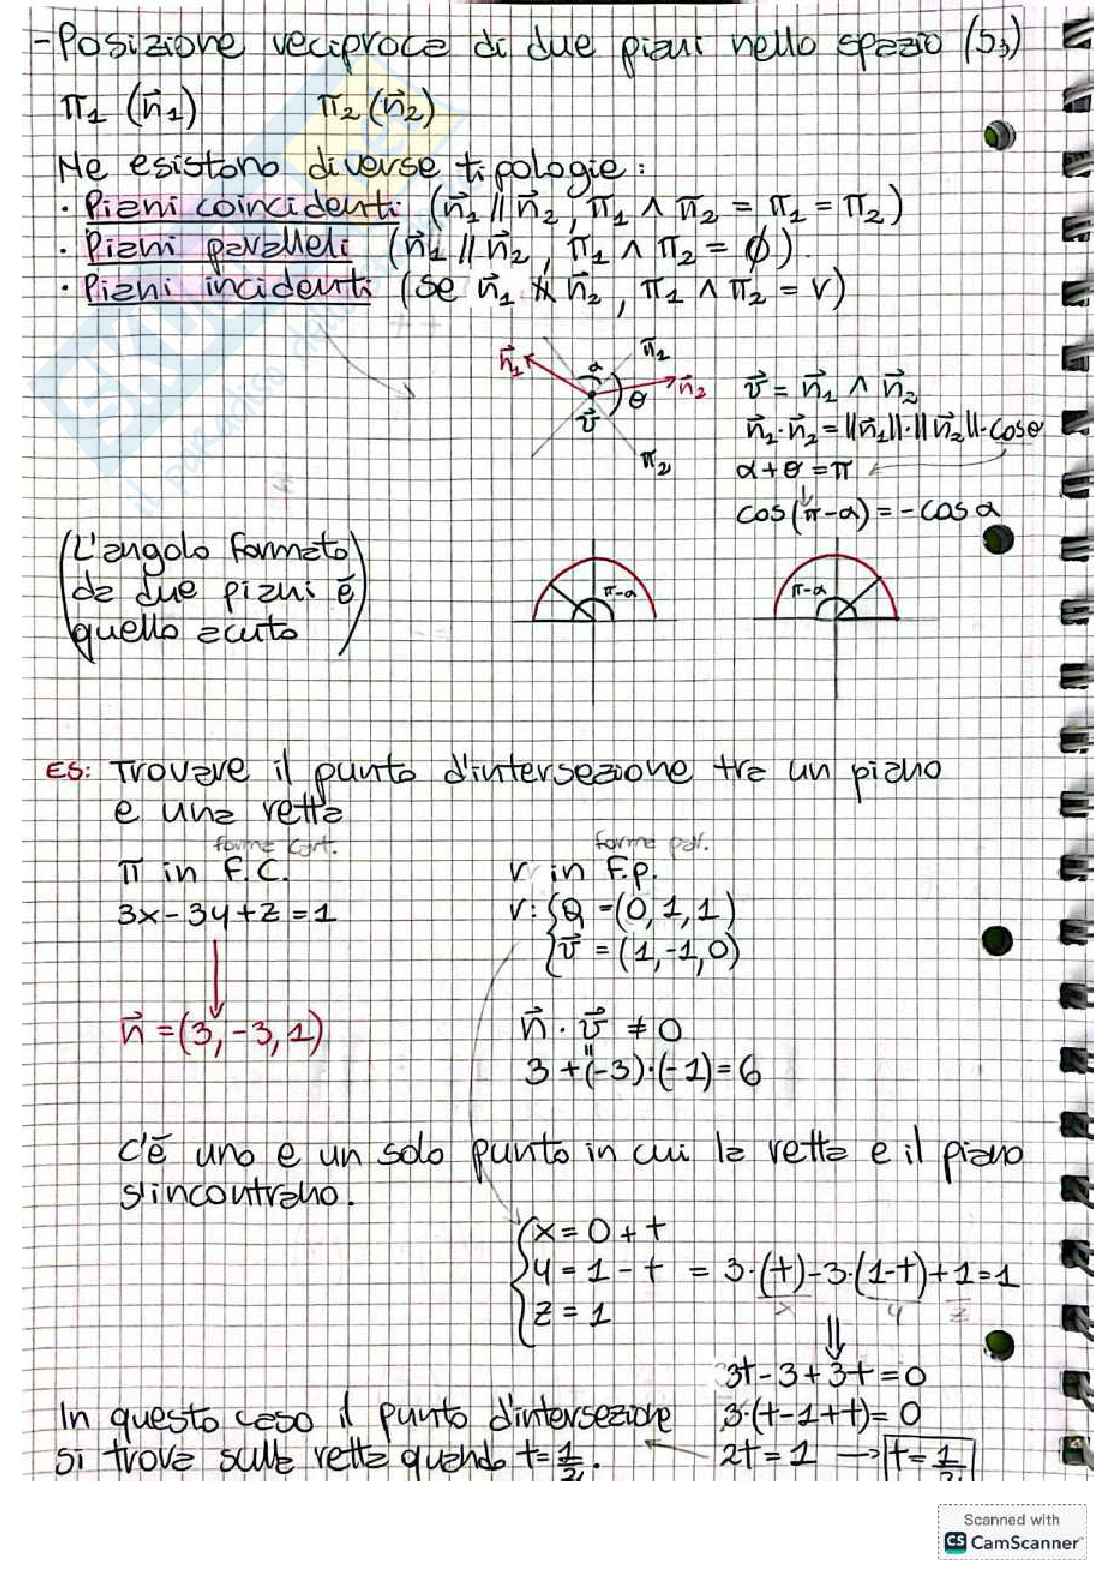 -Posizione reciproca di due piani nello spazio (S₃)
π₁ (n⃗₁) π₂ (n⃗₂)
Ne esistono diverse tipologie:
· Piani coincidenti (n⃗₁ ∥ n⃗₂, π₁ ∧ π₂ = π₁ = π₂)
· Piani paralleli (n⃗₁ ∥ n⃗₂, π₁ ∧ π₂ = ∅).
· Piani incidenti (se n⃗₁ ∦ n⃗₂, π₁ ∧ π₂ = r)
n⃗₁ α π₂ n⃗₂ θ v⃗ π₂
v⃗ = n⃗₁ ∧ n⃗₂
n⃗₂·n⃗₂ = ||n⃗₁||·||n⃗₂||·cosθ
α+θ=π
cos(π-α)=-cosα
(L'angolo formato
da due piani è
quello acuto)
π-α π-α
ES: Trovare il punto d'intersezione tra un piano
e una retta
forma cart. forma par.
π in F.C. r in F.p.
3x-3y+z=1 r: {Q=(0,1,1)
v⃗ = (1,-1,0)
n⃗ =(3,-3,1) n⃗ · v⃗ ≠ 0
3+(-3)·(-1)=6
C'è uno e un solo punto in cui la retta e il piano
s'incontrano.
{x=0+t
y=1-t = 3·(t)-3·(1-t)+1=1
z=1 x y z
⇓
3t-3+3t=0
In questo caso il punto d'intersezione 3·(t-1+t)=0
si trova sulla retta quando t=1/2. ← 2t=1 → t=1/2
Scanned with
CS CamScanner